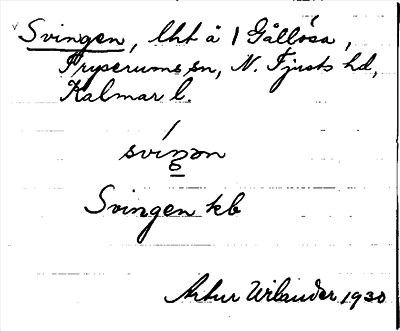 Svingen, lht å 1 Gållösa,
Fryserums sn, N. Tjusts hd,
Kalmar l.
Svingen kb
Artur Wilander 1930